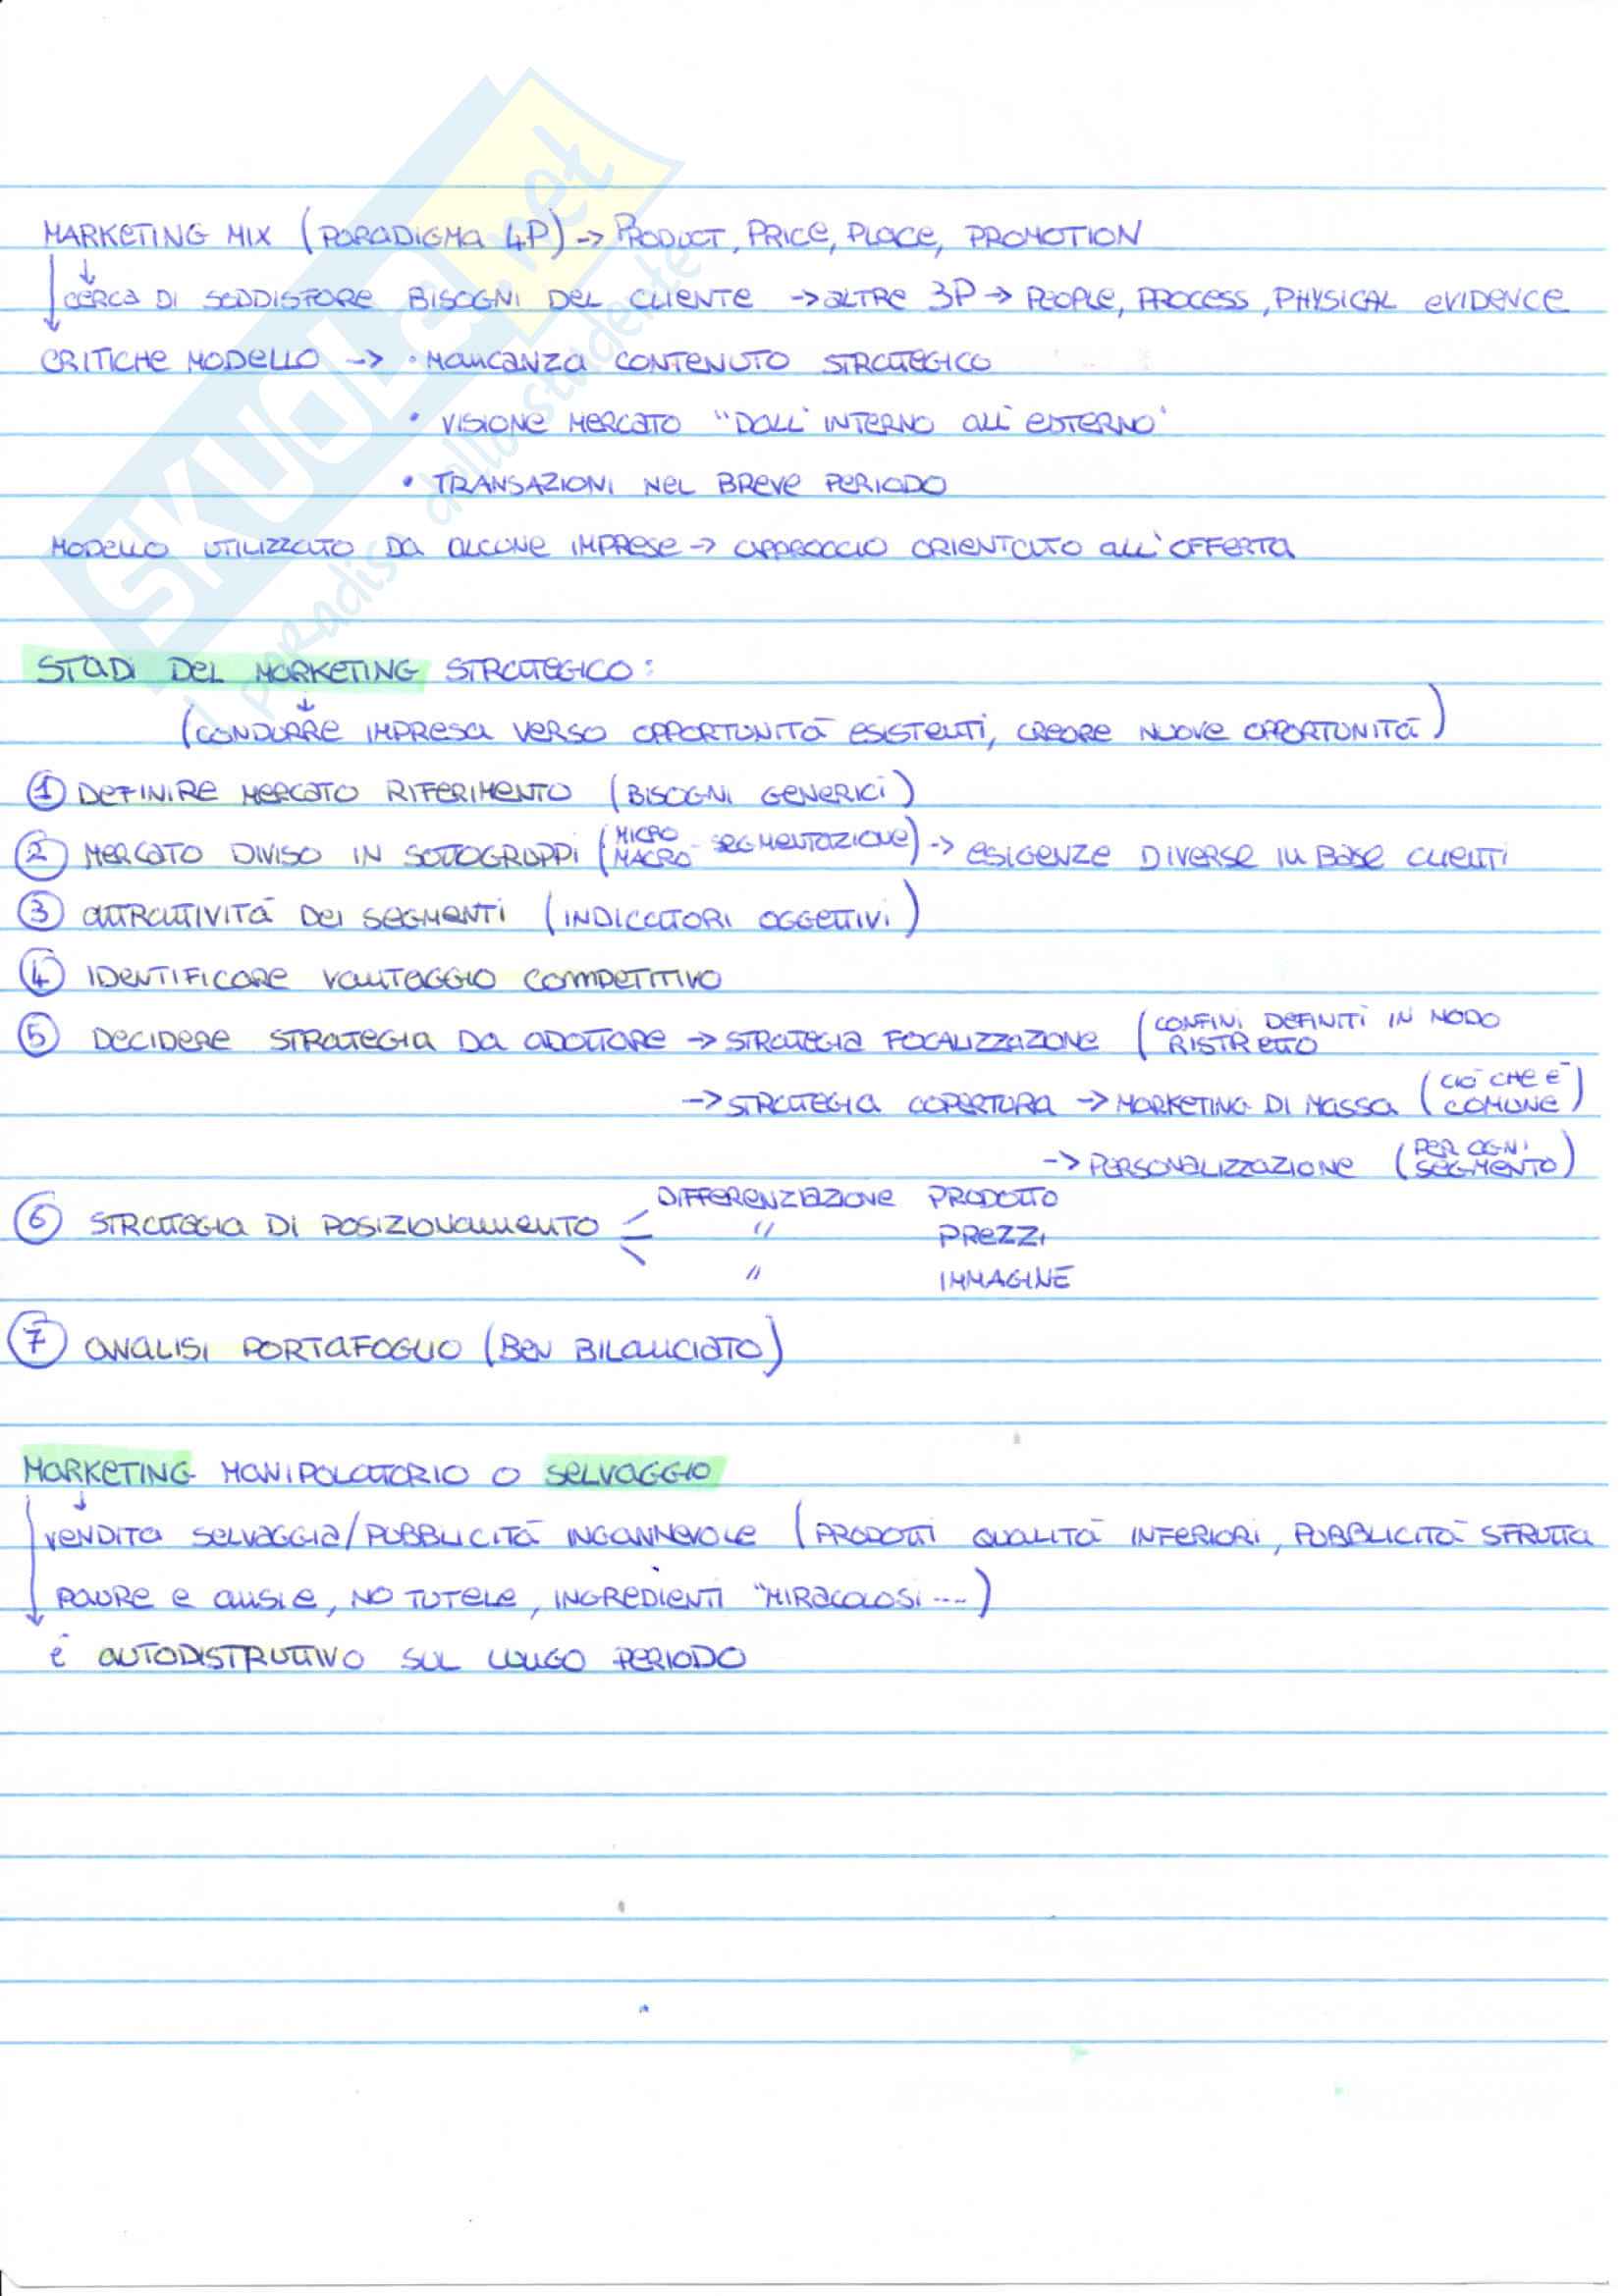 SKUOLA.net
il paradiso dello studente
MARKETING MIX (PARADIGMA 4P) -> PRODUCT, PRICE, PLACE, PROMOTION
CERCA DI SODDISFARE BISOGNI DEL CLIENTE -> ALTRE 3P -> PEOPLE, PROCESS, PHYSICAL EVIDENCE
CRITICHE MODELLO -> • MANCANZA CONTENUTO STRATEGICO
• VISIONE MERCATO "DALL'INTERNO ALL'ESTERNO"
• TRANSAZIONI NEL BREVE PERIODO
MODELLO UTILIZZATO DA ALCUNE IMPRESE -> APPROCCIO ORIENTATO ALL'OFFERTA
STADI DEL MARKETING STRATEGICO:
(CONDURRE IMPRESA VERSO OPPORTUNITÀ ESISTENTI, CREARE NUOVE OPPORTUNITÀ)
1 DEFINIRE MERCATO RIFERIMENTO (BISOGNI GENERICI)
2 MERCATO DIVISO IN SOTTOGRUPPI (MICRO MACRO - SEGMENTAZIONE) -> ESIGENZE DIVERSE IN BASE CLIENTI
3 ATTRATTIVITÀ DEI SEGMENTI (INDICATORI OGGETTIVI)
4 IDENTIFICARE VANTAGGIO COMPETITIVO
5 DECIDERE STRATEGIA DA ADOTTARE -> STRATEGIA FOCALIZZAZIONE (CONFINI DEFINITI IN MODO
RISTRETTO
-> STRATEGIA COPERTURA -> MARKETING DI MASSA (CIÒ CHE È COMUNE)
-> PERSONALIZZAZIONE (PER OGNI SEGMENTO)
DIFFERENZIAZIONE PRODOTTO
6 STRATEGIA DI POSIZIONAMENTO " PREZZI
" IMMAGINE
7 ANALISI PORTAFOGLIO (BEN BILANCIATO)
MARKETING MANIPOLATORIO O SELVAGGIO
VENDITA SELVAGGIA/PUBBLICITÀ INGANNEVOLE (PRODOTTI QUALITÀ INFERIORI, PUBBLICITÀ SFRUTTA
PAURE E ANSIE, NO TUTELE, INGREDIENTI "MIRACOLOSI ....)
È AUTODISTRUTTIVO SUL LUNGO PERIODO